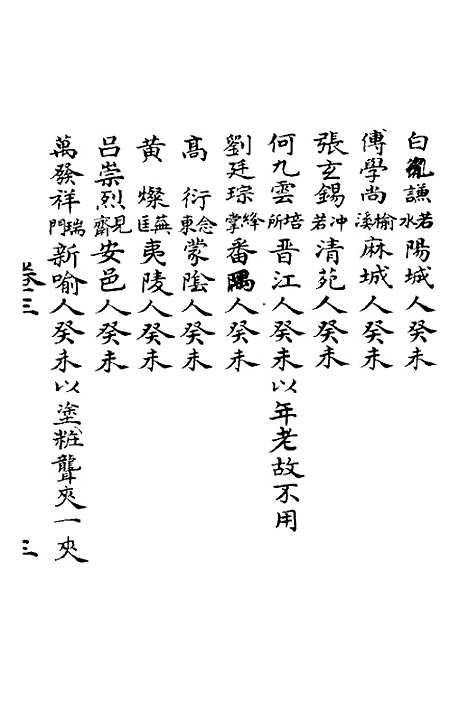 白胤謙若水陽城人癸未
傅學尚榆溪麻城人癸未
張玄錫冲若清苑人癸未
何九雲培所晋江人癸未以年老故不用
劉廷琮絳掌番隅人癸未
高衍念東蒙陰人癸未
黃燦蕪匡夷陵人癸未
吕崇烈見齋安邑人癸未
萬發祥瑞門新喻人癸未以塗粧聾夾一夾
卷三
三